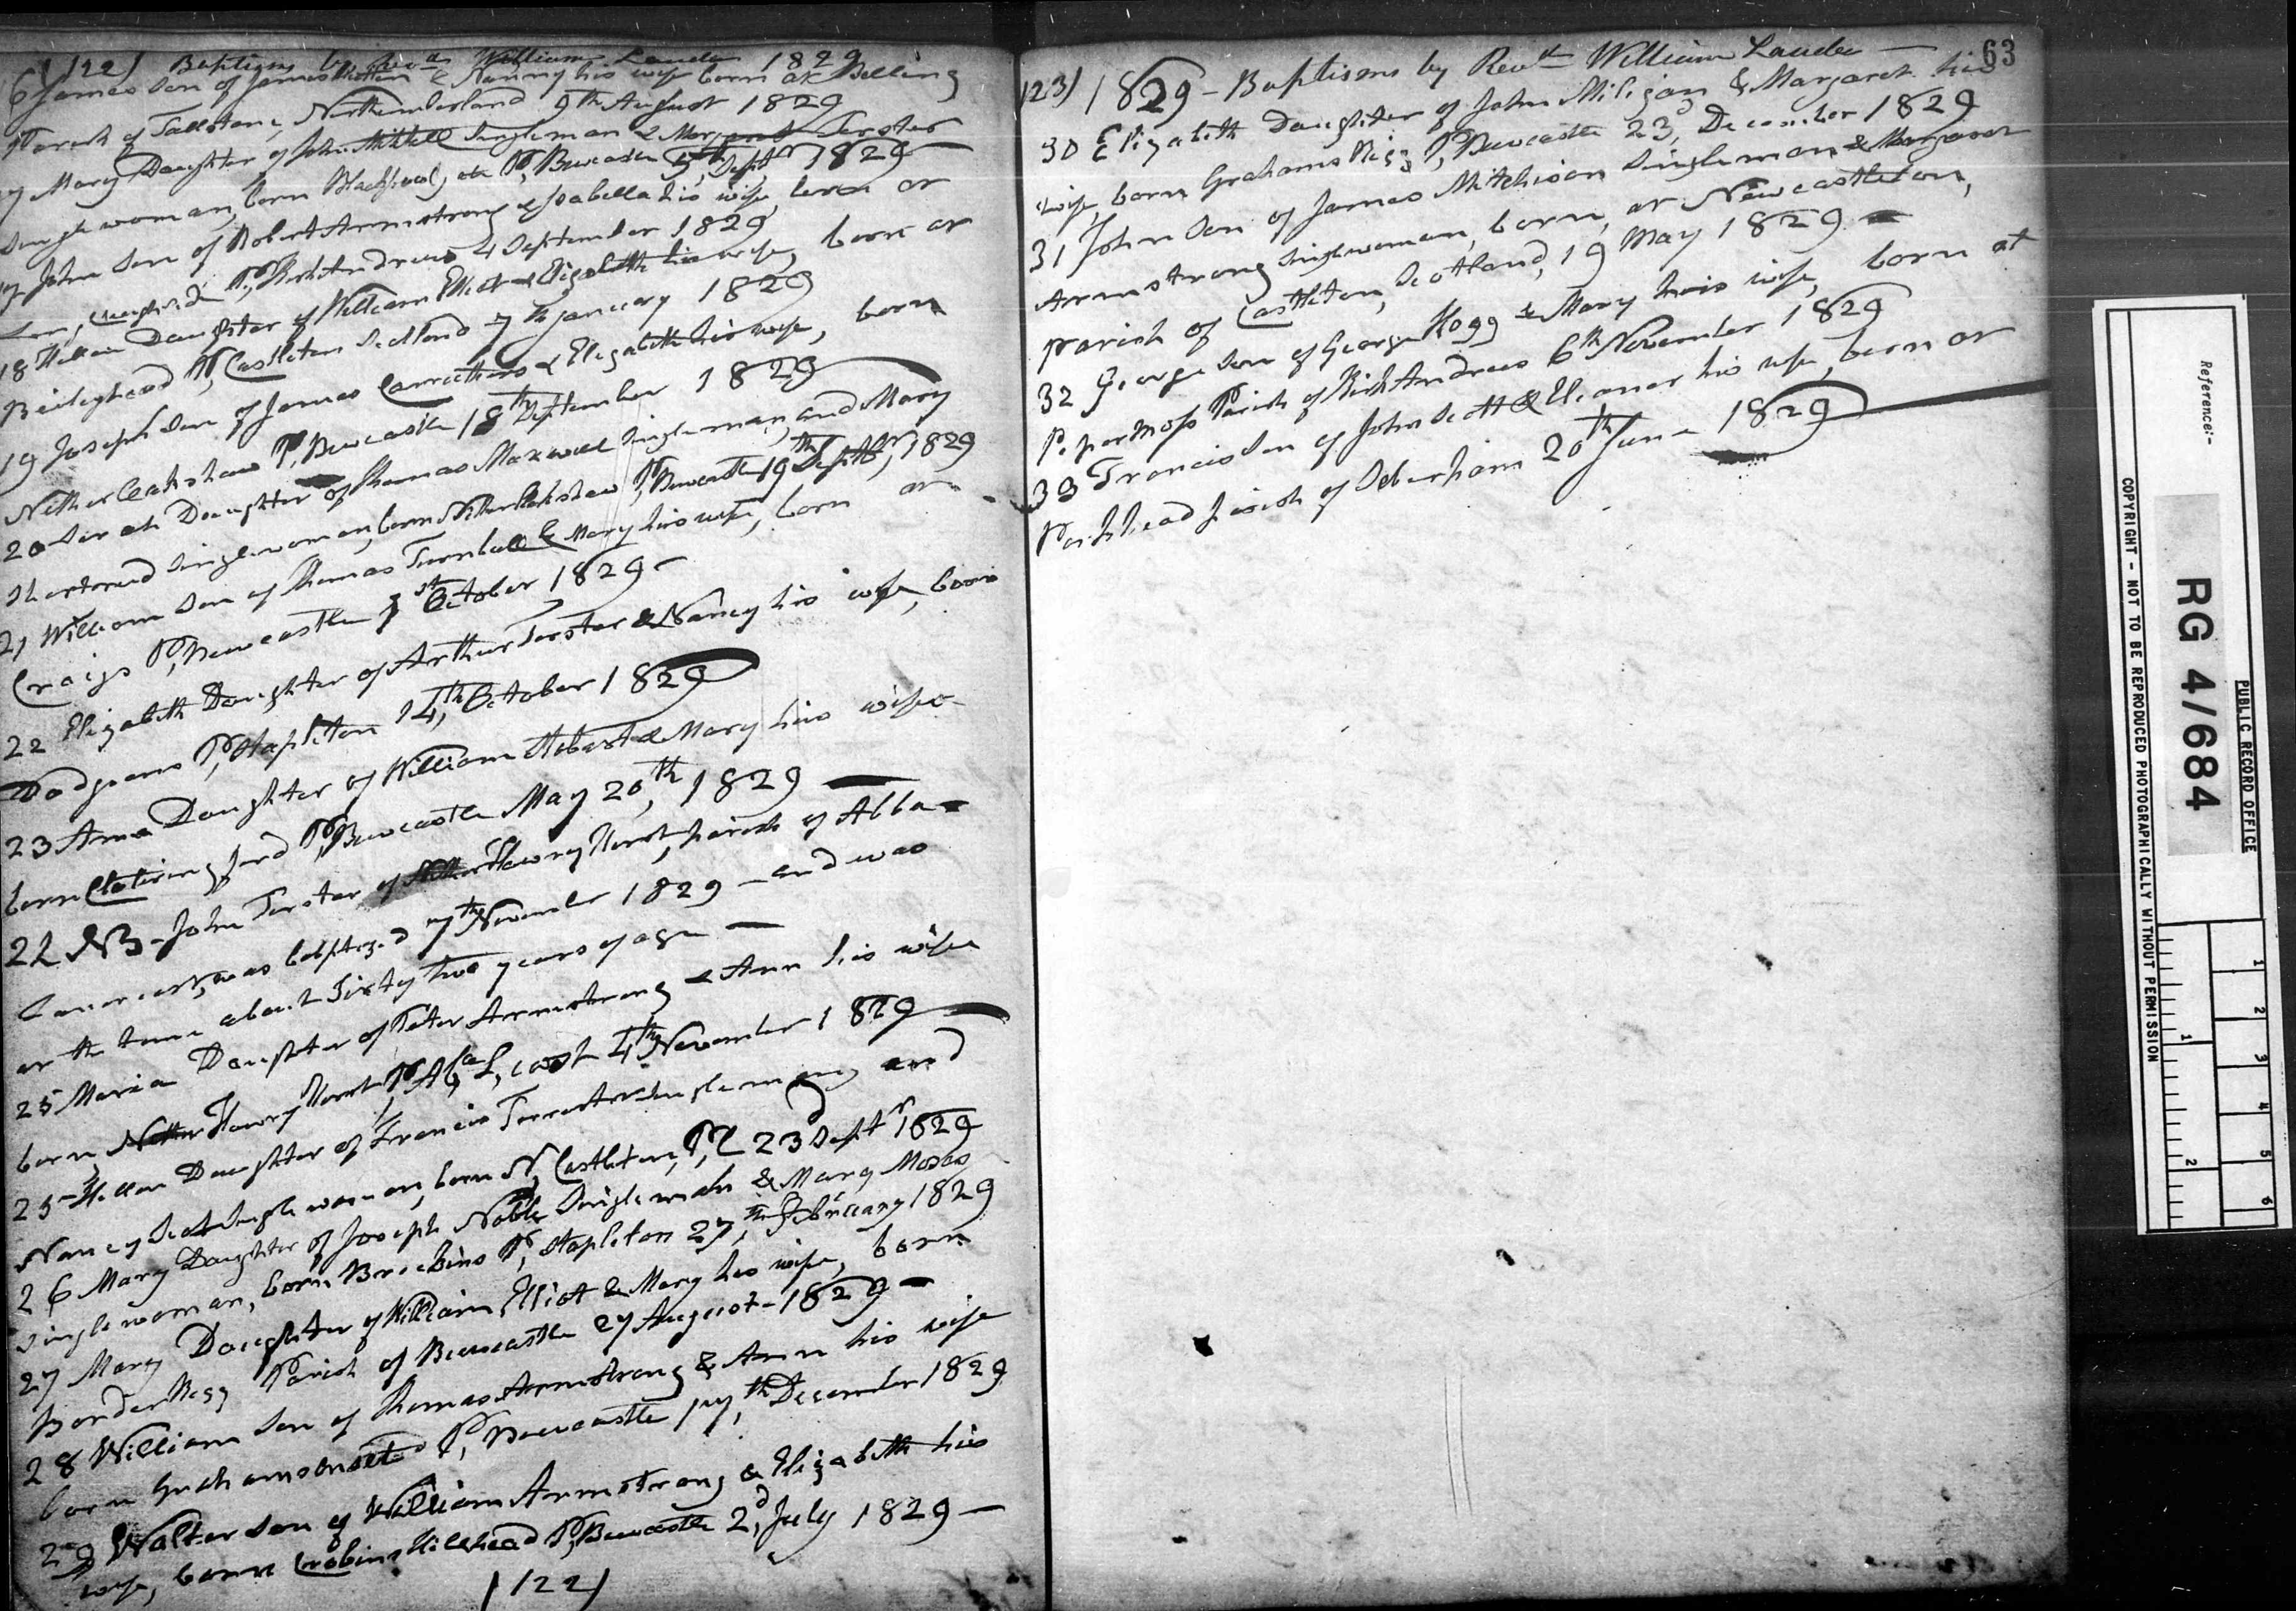 (122) Baptisms by Revd William Lauder 1829
6 James Son of James & Nanny his wife born at Belling
Parish of Fallstone, Northumberland 9th August 1829
17 Mary Daughter of John Mitchell Singleman & Margaret Forster
Single woman, born P, Bewcastle 5th Septr 1829
17 John Son of Robert Armstrong & Isabella his wife, born at
P, Kirkandrews 4 September 1829
18 Hellen Daughter of William Elliot & Elizabeth his wife, born at
P, Castleton Scotland 7th January 1829
19 Joseph Son of James Carruthers & Elizabeth his wife, born
Nether Oakshaw P, Bewcastle 18th September 1829
20 Sarah Daughter of Thomas Maxwell Singleman, and Mary
Shortreed Single woman, born Nether Oakshaw P, Bewcastle 19th Septbr, 1829
21 William Son of Thomas Turnbull & Mary his wife, born at
Craigs P, Bewcastle 1st October 1829 -
22 Elizabeth Daughter of Arthur Forster & Nancy his wife, born
P, Stapleton 14th, October 1829
23 Ann Daughter of William Hobart & Mary his wife
born Clattering ford P, Bewcastle May 20th, 1829
22 NB - John Forster of Nether Hawry Horst, parish of Abba
Lanarcost, was baptized 7th November 1829 - and was
at the time about Sixty two years of age -
25 Maria Daughter of Peter Armstrong & Ann his wife
born, Nether Hawry Horst P, Aba L, cost 4th November 1829
25 Hellen Daughter of Francis Forrester Singleman, and
Nancy Scot Single woman, born N, Castleton, P, C 23d Septr 1829
26 Mary Daughter of Joseph Noble Singleman & Mary Moses
Single woman, born P, Stapleton 27, th February 1829
27 Mary Daughter of William Elliot & Mary his wife, born
Border Rigg Parish of Bewcastle 27 August - 1829 -
28 William Son of Thomas Armstrong & Ann his wife
born Grahams onsett P, Bewcastle 17, th December 1829
29 Walter Son of William Armstrong & Elizabeth his
wife, born Crobins Hillhead P, Bewcastle 2d, July 1829 -
(122)
63
123) 1829 - Baptisms by Revth William Lauder -
30 Elizabeth Daughter of John Miligan & Margaret his
wife, born Grahams Rigg P, Bewcastle 23d, December 1829
31 John Son of James Mitchison Singleman & Margaret
Armstrong Singlewoman, born, at Newcastleton,
parish of Castleton, Scotland, 19 May 1829 -
32 George Son of George Hogg & Mary his wife, born at
Peper moss Parish of Kirk Andrews 6th November 1829
33 Francis Son of John Scott & Eleanor his wife, born at
Parkhead parish of Seberham 20th June 1829
Reference:-
PUBLIC RECORD OFFICE
RG 4/684
COPYRIGHT - NOT TO BE REPRODUCED PHOTOGRAPHICALLY WITHOUT PERMISSION
1
2
3
4
5
6
1
2